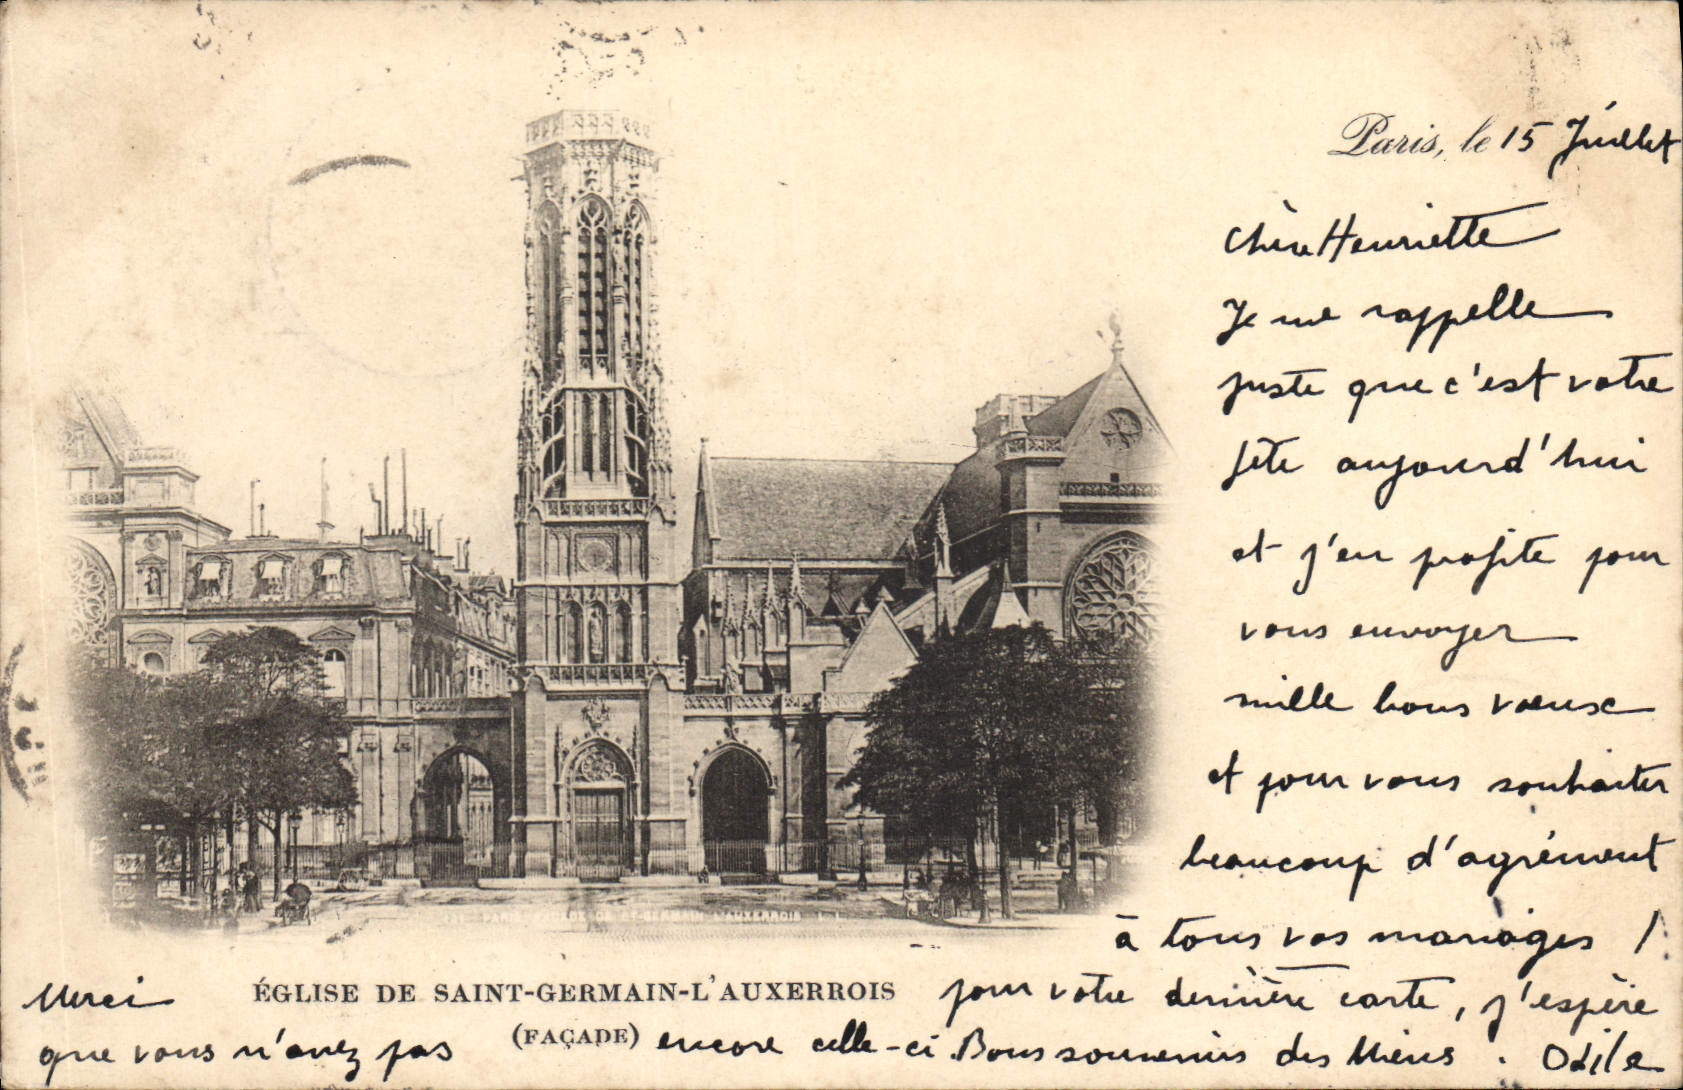 Paris, le 15 Juillet
Chère Henriette
Je me rappelle
juste que c'est votre
fête aujourd'hui
et j'en profite pour
vous envoyer
mille bons voeux
et pour vous souhaiter
beaucoup d'agrément
à tous vos mariages !
131 PARIS FAÇADE DE ST-GERMAIN L'AUXERROIS L L
ÉGLISE DE SAINT-GERMAIN-L'AUXERROIS
(FAÇADE)
Merci pour votre dernière carte, j'espère
que vous n'avez pas encore celle-ci. Bons souvenirs des Miens. Odile